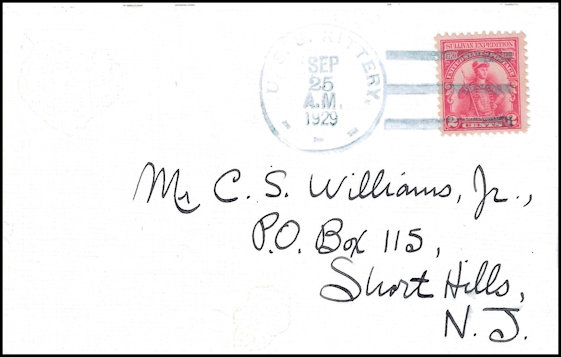 U.S.S. KITTERY.
SEP
25
A.M.
1929
SULLIVAN EXPEDITION
2 CENTS 2
Mr C. S. Williams, Jr.,
P.O. Box 115,
Short Hills,
N. J.